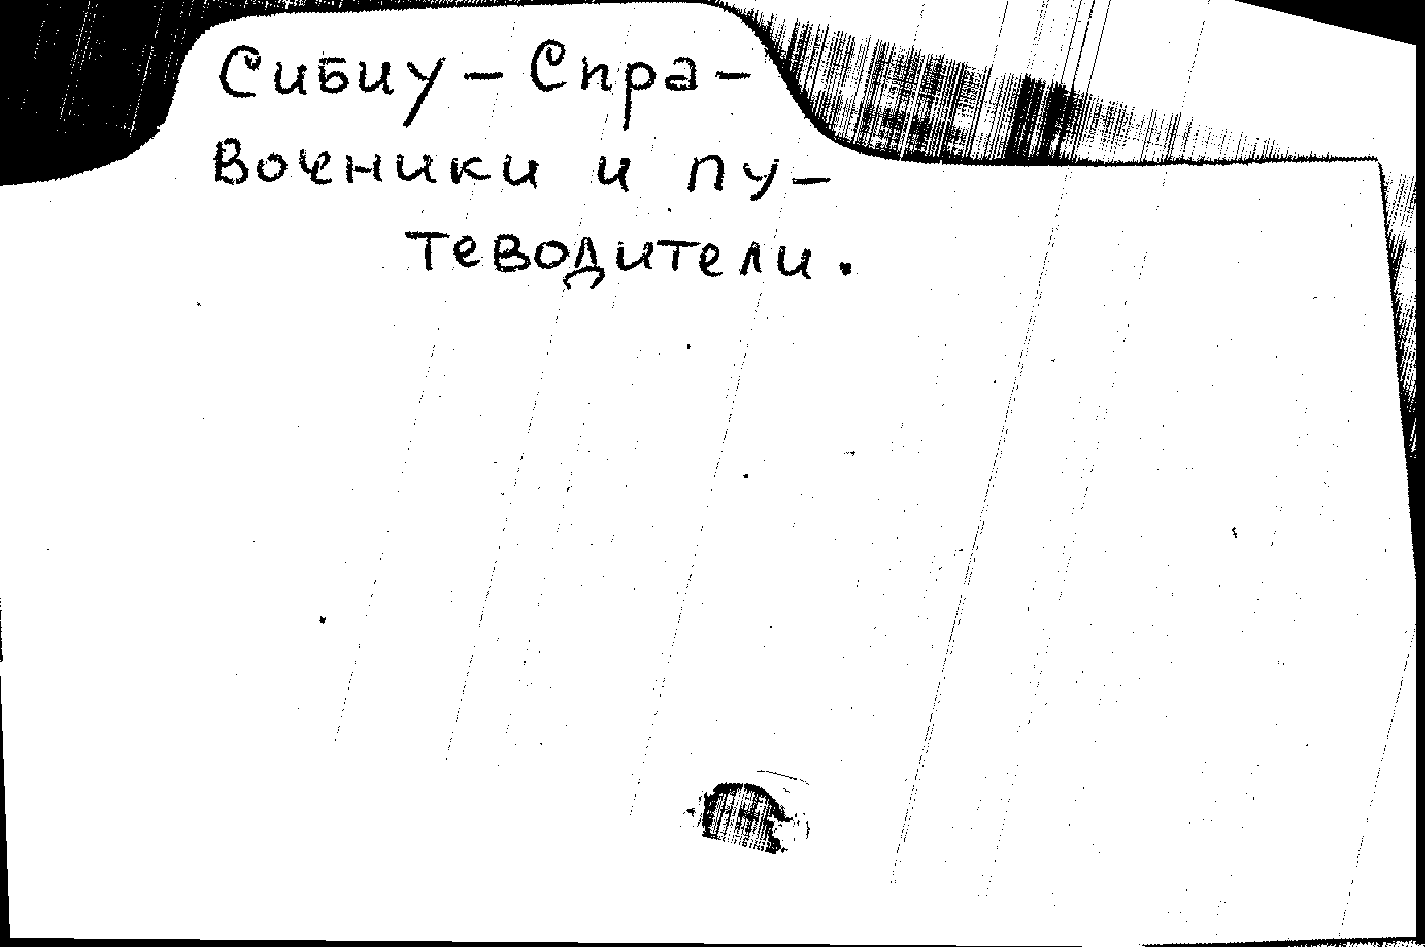 Сибиу – Спра-
вочники и пу-
теводители.